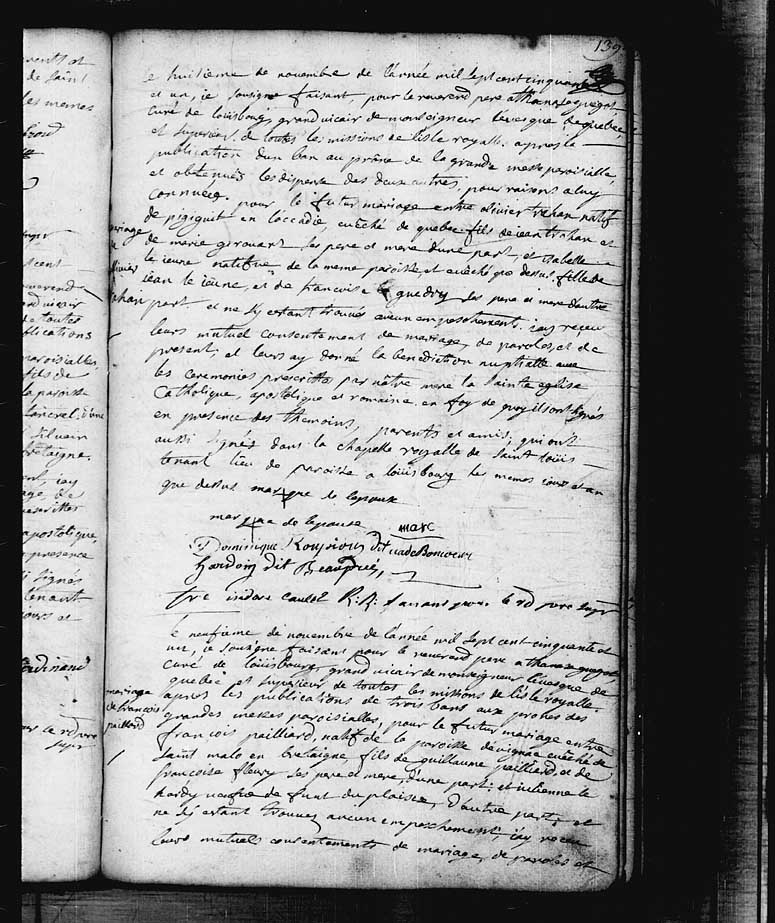 139
vents et
de Saint
les memes
le huitieme de novembre de l'année mil sept cent cinquante
et un, je sousigné faisant, pour le reverend pere athanase guegot
curé de louisbourg, grand vicair de monseigneur levesque de quebec,
et superieur de toutes les missions de l'isle royalle. apres la
publication d'un ban au prône de la grande messe paroissialle
et obtenues les dispense des deux autres, pour raisons a luy
connues. pour le futur mariage entre olivier trehan natif
de pigiguit en laccadie, evêché de quebec fils de jean trahan et
de marie girouart ses pere et mere d'une part, et isabelle
le jeune natifve de la meme paroisse et evêché que dessus fille de
jean le jeune, et de francoise guedry ses pere et mere d'autre
part et ne s'y estant trouvé aucun empeschement. j'ay receu
leurs mutuel consentement de mariage, de paroles, et de
present, et leurs ay donné la benediction nuptialle avec
les ceremonies prescrittes par nâtre mere la Sainte eglise
Catholique, apostolique et romaine. en foy de quoy ils ont signés
en presence des themoins, parents et amis, qui ont
aussi signés dans la chapelle royalle de saint loüis
tenant lieu de paroisse a loüisbourg les memes jour et an
que dessus marque de lepoux
marque de lepouse marc
Dominique dit
hardoin dit Beaupré,
frc isidore caulet R.R. faisans pour le rd pere supr
mariage
de
olivier
trahan
le neufieme de novembre de l'année mil sept cent cinquante et
un, je sousigne faisant pour le reverend pere athanaze guegot
curé de louisbourg, grand vicair de monseigneur levesque de
quebec et superieur de toutes les missions de l'isle royalle.
apres les publications de trois bans aux prônes des
grandes messes paroissialles, pour le futur mariage entre
francois pailliard, natif de la paroisse de vignac evêché de
saint malo en bretaigne, fils de guillaume pailliard, et de
francoise fleury ses pere et mere, d'une part: et julienne le
hardy veufve de funt du plaisie, d'autre part, et
ne s'y estant trouvez aucun empeschement, j'ay receu
leurs mutuels consentements de mariage, de paroles et
mariage
de francois
pailliard
everend
nd vicair
de toutes
blications
paroisialles
fils de
la paroisse
d'une
silvain
bretaigne,
jay
age, de
apostolique
presence
signés
tenant
jours et
ferdinand
le rd pere
supr